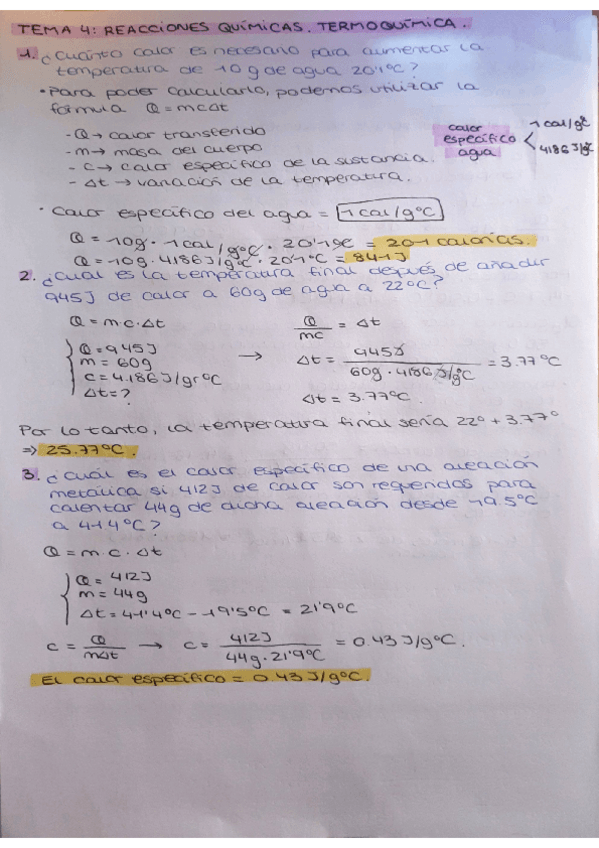 TEMA 4: REACCIONES QUÍMICAS. TERMOQUÍMICA.
1. ¿Cuánto calor es necesario para aumentar la
temperatura de 10g de agua 20'1ºC?
• Para poder calcularlo, podemos utilizar la
fórmula Q = mcΔt
- Q → calor transferido
- m → masa del cuerpo
- c → calor específico de la sustancia.
- Δt → variación de la temperatura.
calor específico agua < 1 cal/gºC
4186 J/gºC
• Calor específico del agua = 1 cal/gºC
Q = 10g · 1 cal/gºC · 20'1ºC = 201 calorías.
Q = 10g · 4186 J/gºC · 20'1ºC = 841J
2. ¿Cuál es la temperatura final después de añadir
945J de calor a 60g de agua a 22ºC?
Q = m·c·Δt
Q/mc = Δt
Q = 945J
m = 60g
c = 4.186J/grºC
Δt = ?
→ Δt = 945J / 60g · 4186 J/gºC = 3.77ºC
Δt = 3.77ºC.
Por lo tanto, la temperatura final sería 22º + 3.77º
⇒ 25.77ºC.
3. ¿Cuál es el calor específico de una aleación
metálica si 412J de calor son requeridos para
calentar 44g de dicha aleación desde 19.5ºC
a 41'4ºC?
Q = m·c·Δt
Q = 412J
m = 44g
Δt = 41'4ºC - 19'5ºC = 21'9ºC
c = Q/mΔt → c = 412J / 44g · 21'9ºC = 0.43 J/gºC.
El calor específico = 0.43 J/gºC.